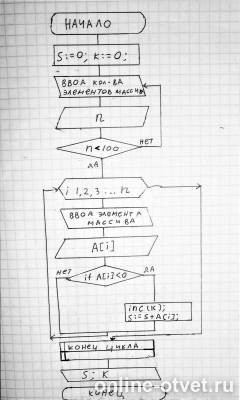 НАЧАЛО
S:=0; K:=0;
ВВОД КОЛ-ВА
ЭЛЕМЕНТОВ МАССИВА
n
n<100
НЕТ
ДА
i 1,2,3 ... n
ВВОД ЭЛЕМЕНТА
МАССИВА
A[i]
НЕТ
if A[i]<0
ДА
inc(K);
S:=S+A[i];
КОНЕЦ ЦИКЛА
S; K
КОНЕЦ
online-otvet.ru